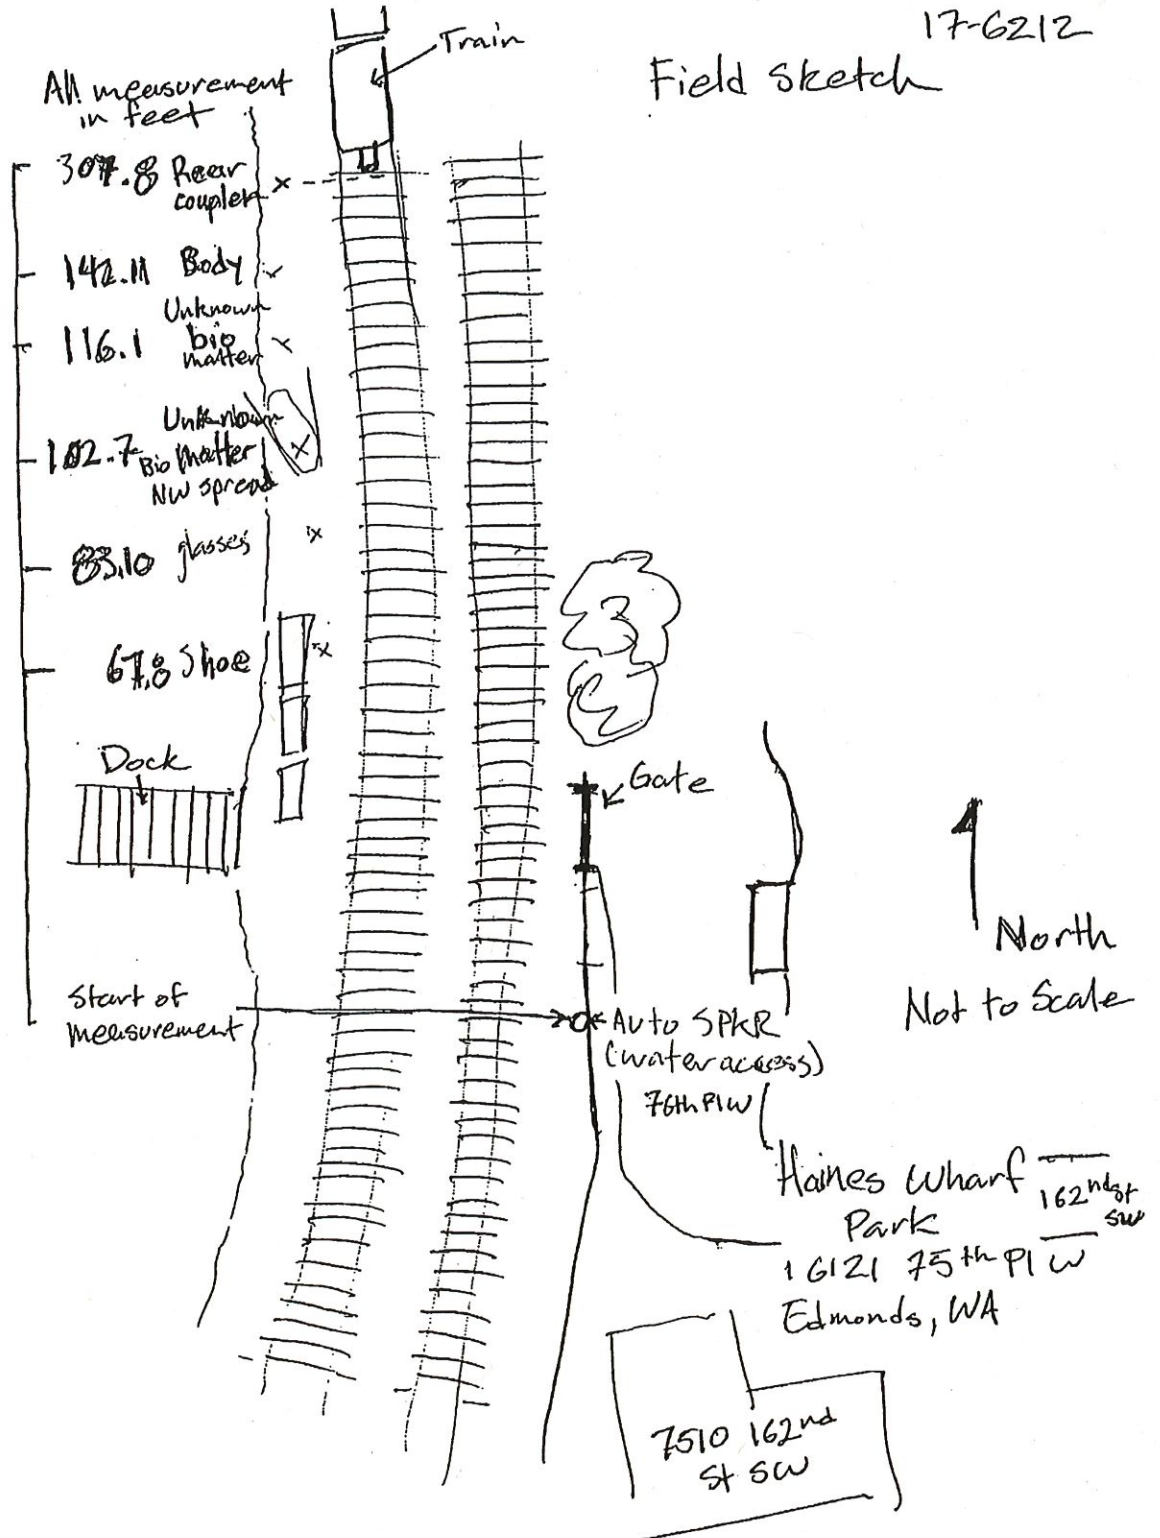 17-6212
Field Sketch
Train
All measurement
in feet
307.8 Rear
coupler
142.11 Body
Unknown
116.1 bio
matter
Unknown
102.7 Bio Matter
NW spread
83.10 glasses
67.8 Shoe
Dock
Gate
North
Not to Scale
Start of
measurement
Auto SPKR
(water access)
76th Pl W
Haines Wharf
Park
162nd St
SW
16121 75th Pl W
Edmonds, WA
7510 162nd
St SW